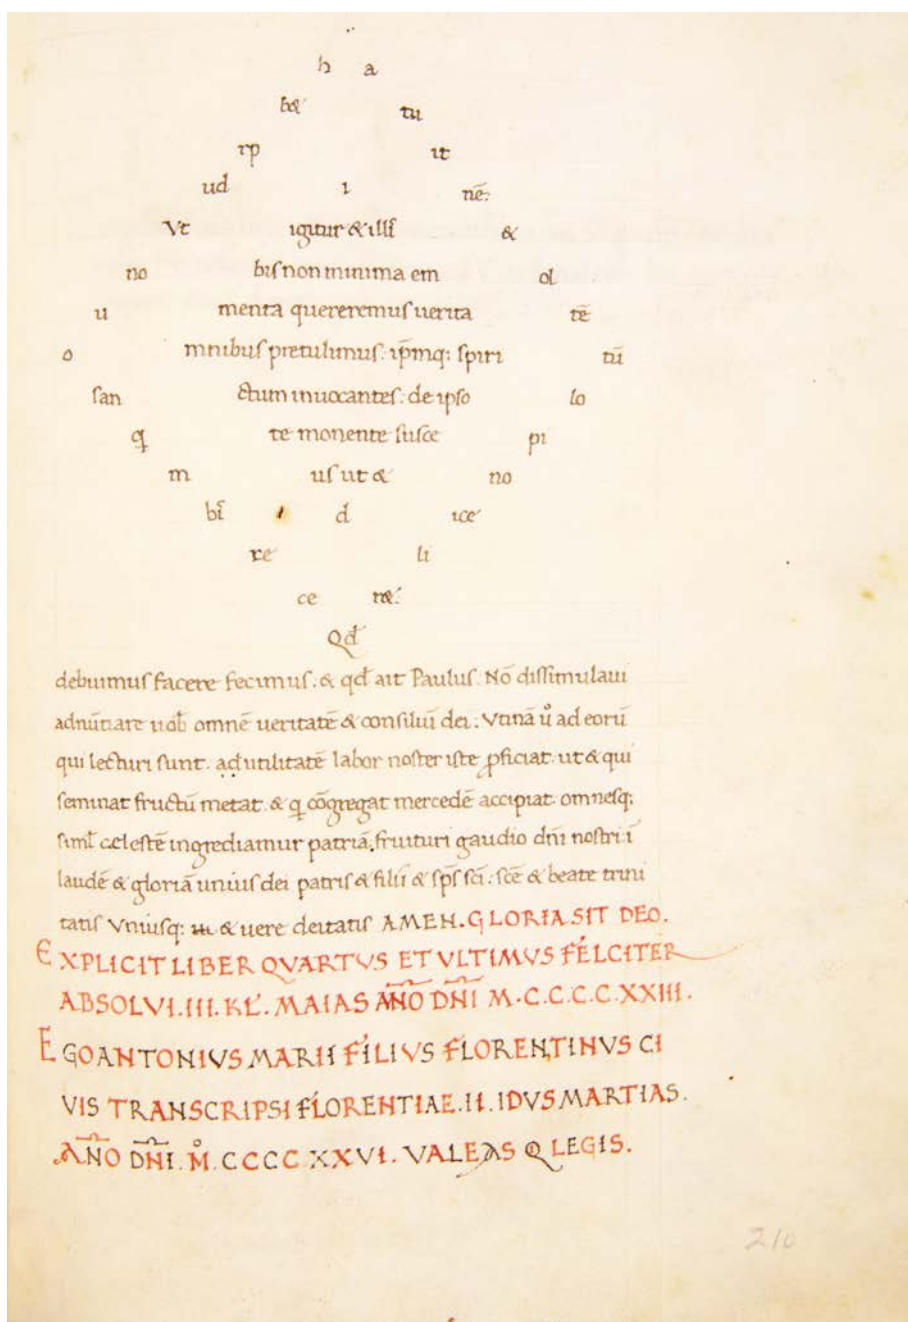 h a
b& tu
rp it
ud i nē:
Vt igitur & illſ &
no biſ non minima em ol
u menta quereremuſ uerita tē
o mnibuſ pretulimuſ: ip̄mq; ſpiri tū
ſan ctum inuocanteſ: de ipſo lo
q te monente ſuſce pi
m uſ ut & no
bī d ice
re li
ce n&:
Qd
debuimuſ facere fecimuſ. & qđ ait Pauluſ. Nō diſſimulaui
adnūtiare uob omnē ueritatē & conſiliū dei: Vtinā ů ad eorū
qui lecturi ſunt. ad utilitatē labor noſter iſte ꝓficiat. ut & qui
ſeminat fructū metat. & q cōgregat mercedē accipiat. omneſq;
ſimł cęleſtē ingrediamur patriā, fruituri gaudio dn̄i noſtri ī
laudē & gloriā uniuſ dei patriſ & filii & ſp̄ſ ſc̄i: ſc̄ē & beate trini
tatiſ Vniuſq: & uere deitatiſ AMEN. GLORIA SIT DEO.
EXPLICIT LIBER QVARTVS ET VLTIMVS FÉLCITER
ABSOLVI. III. KL. MAIAS AÑO DÑI M.C.C.C.C.XXIII.
EGO ANTONIVS MARII FILIVS FLORENTINVS CI
VIS TRANSCRIPSI FLORENTIAE. II. IDVS MARTIAS.
AÑO DÑI. M̊. CCCC XXVI. VALEAS Q LEGIS.
210